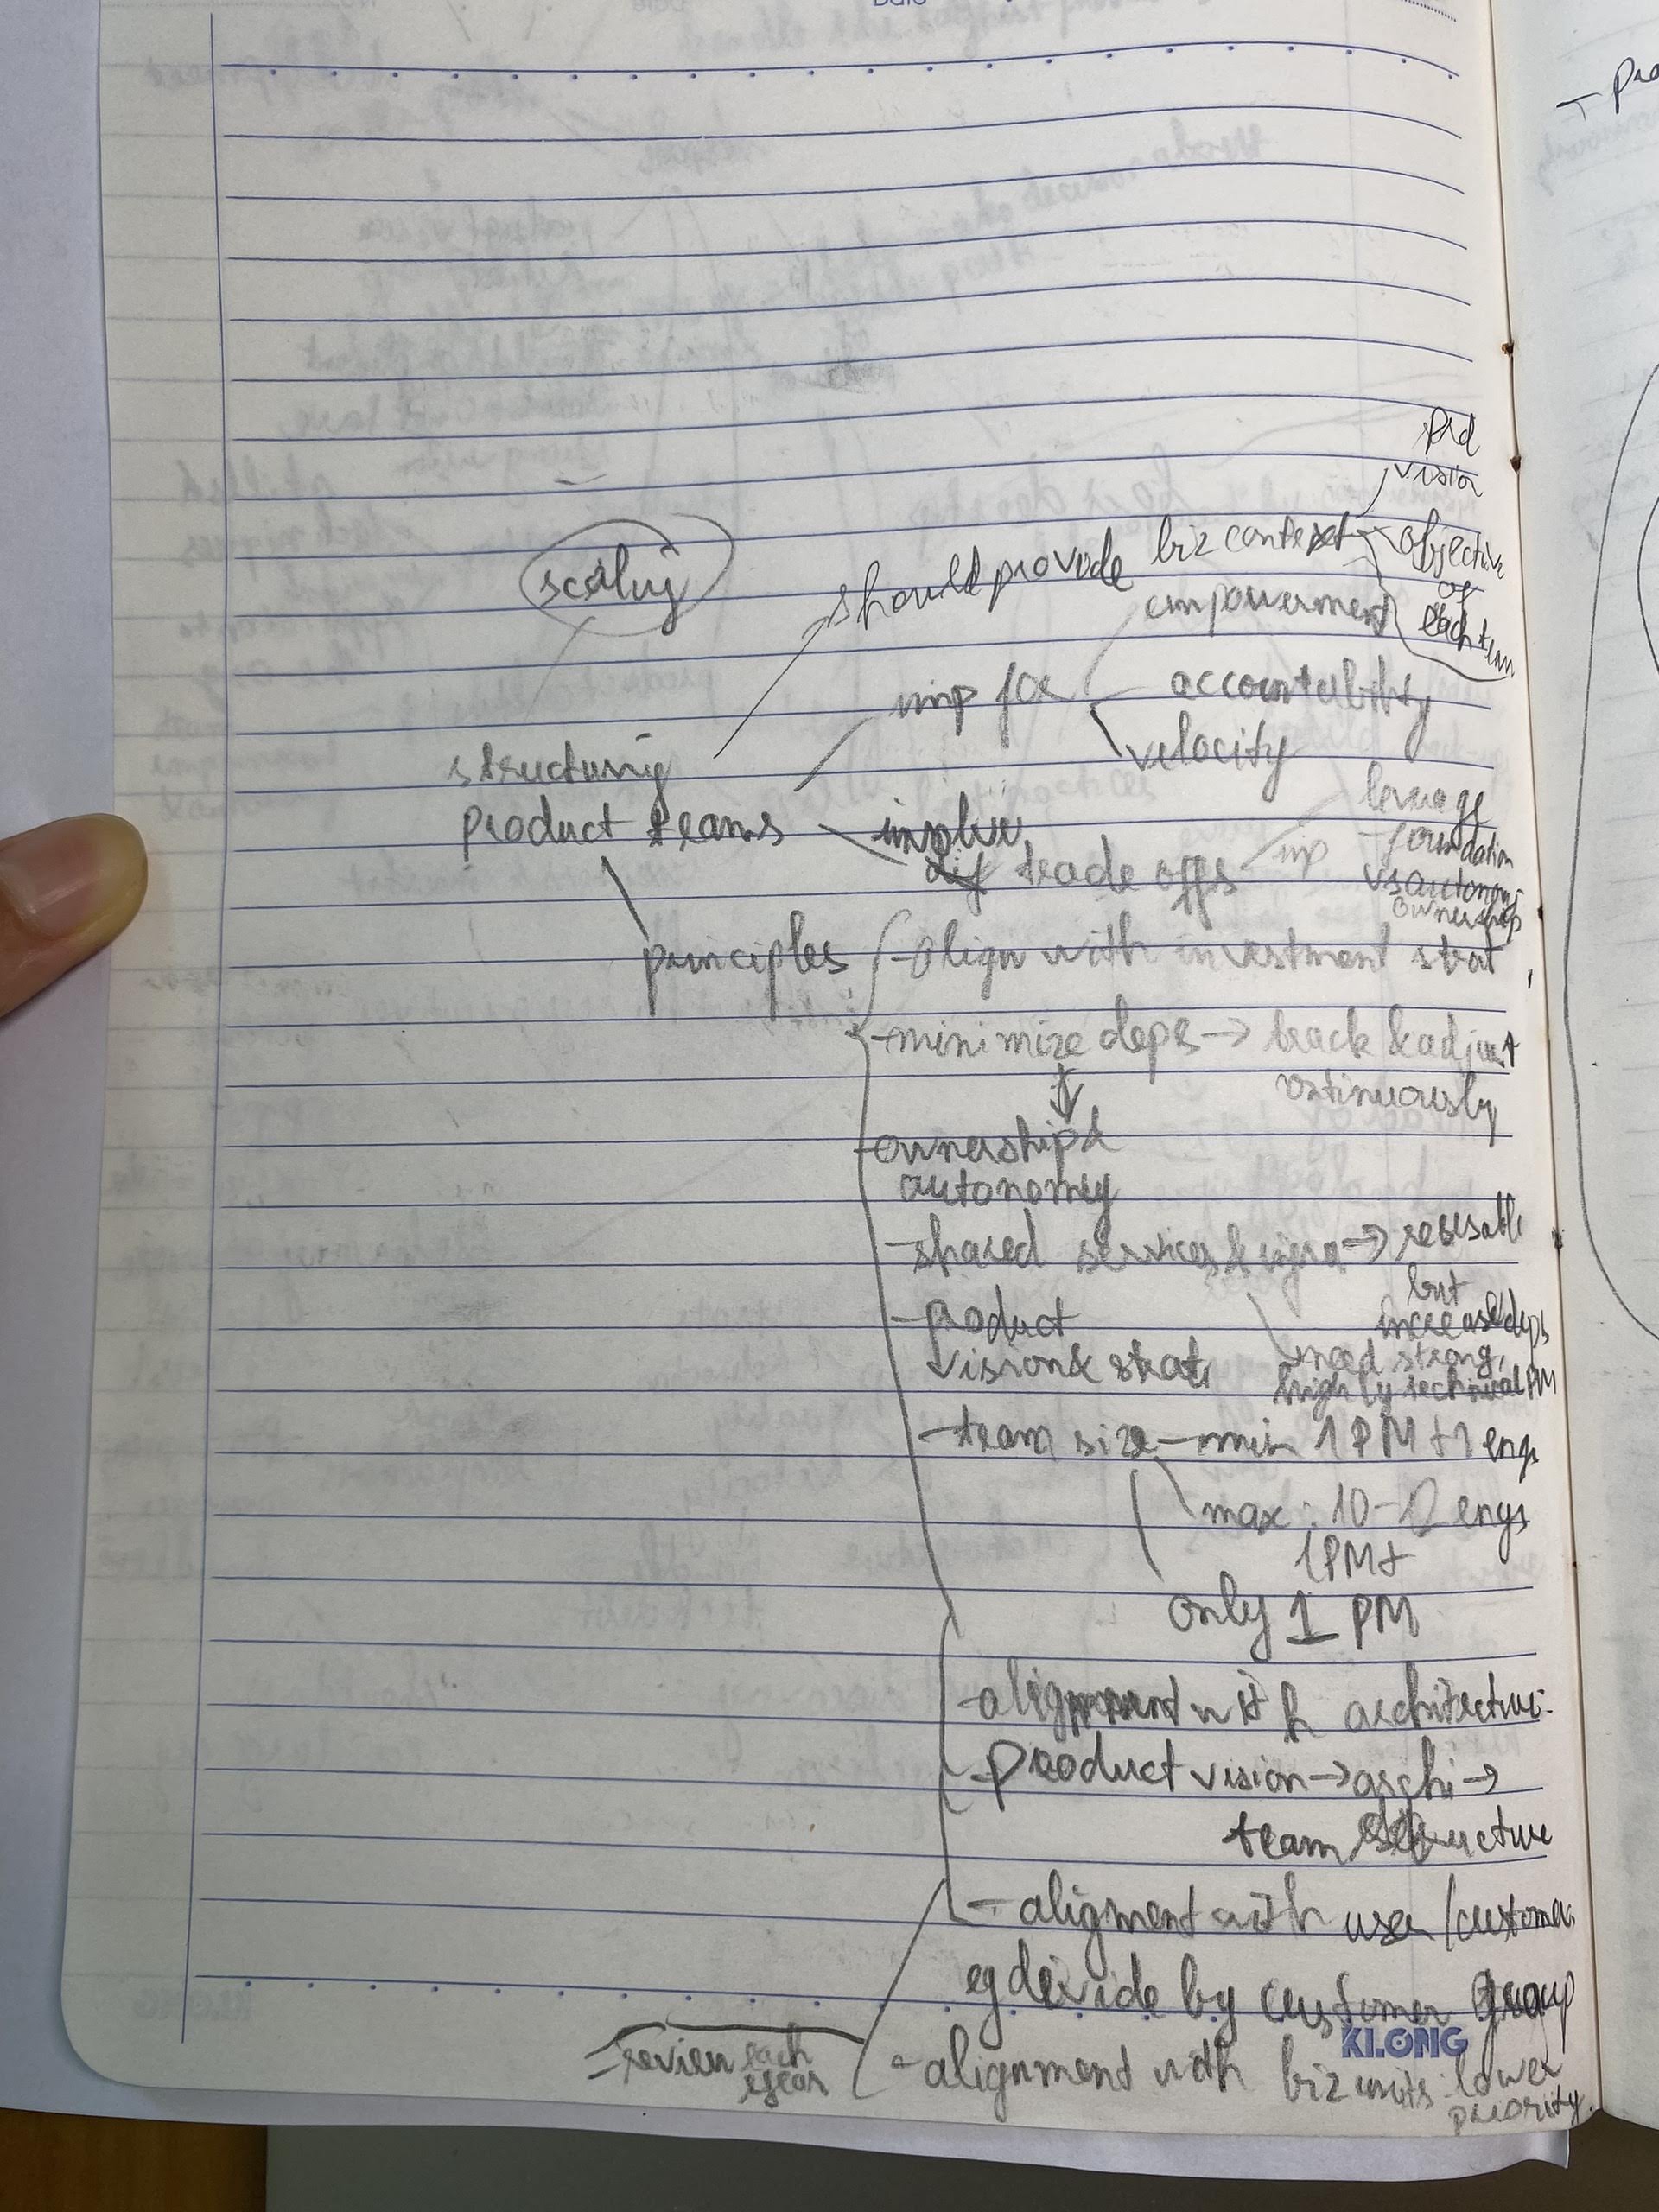 Date
prd
vision
scaling
should provide biz context
objective
of
each team
empowerment
imp for
accountability
velocity
structuring
product teams
involve
trade offs
imp
leverage
foundation
vs autonomy
ownership
principles
- align with investment strat
- minimize deps → track & adjust
continuously
- ownership &
autonomy
- shared services & → reusable
but
increase deps
need strong,
highly technical PM
- product
vision & strat
- team size - min 1 PM + 1 engs
max : 10-12 engs
1PM +
only 1 PM
- alignment with architecture
- product vision → archi →
team structure
- aligment with user / customer
eg devide by customer group
KLONG
- review each
year
- alignment with biz units - lower
priority